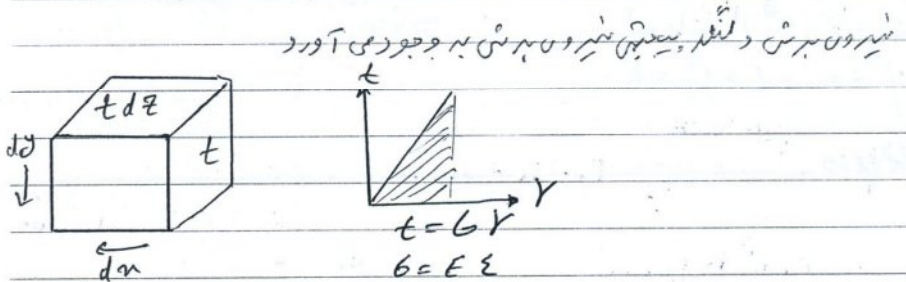 نیروی برشی و لنگر پیچشی نیروی برشی به وجود می آورد
t
t dz
dy
t
γ
t = G γ
dn
6 = E ε